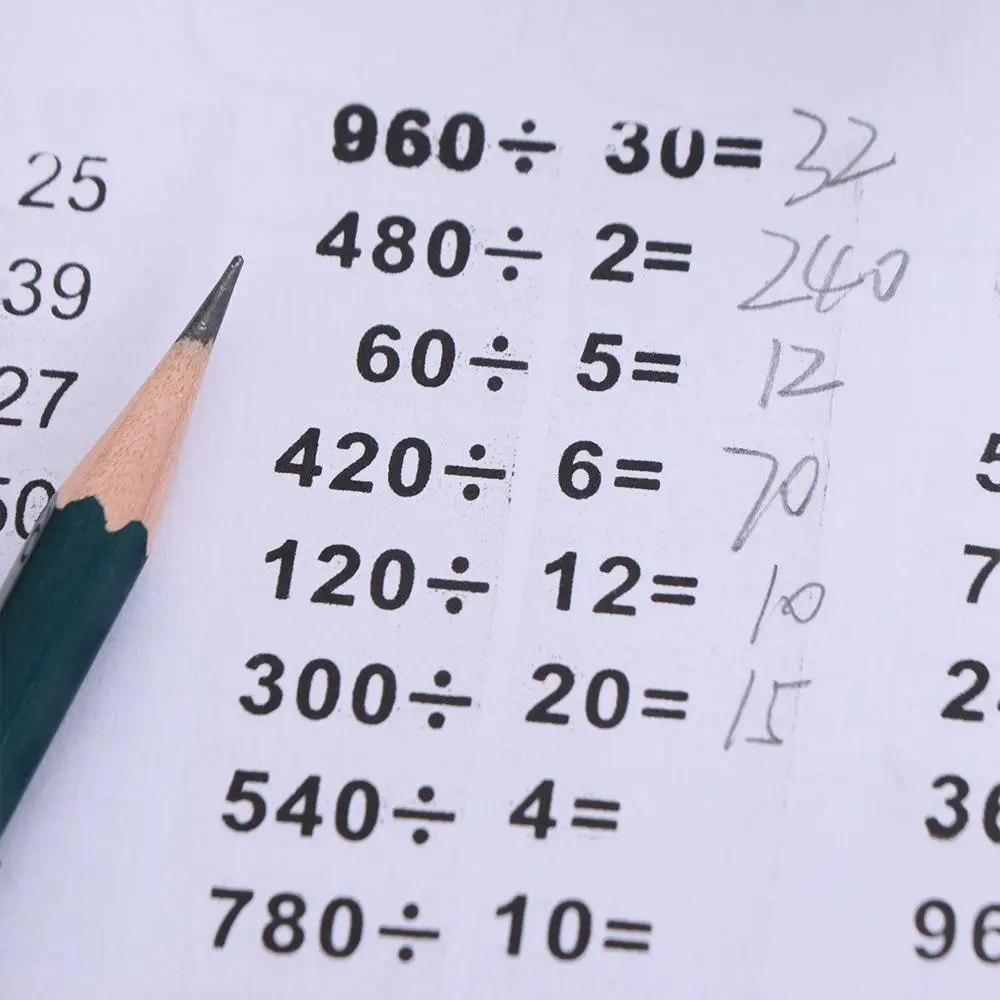 25
39
27
50
960÷ 30= 32
480÷ 2= 240
60÷ 5= 12
420÷ 6= 70
120÷ 12= 10
300÷ 20= 15
540÷ 4=
780÷ 10=
5
7
2
36
96